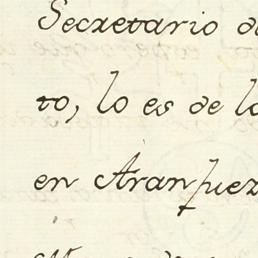 Secretario d
to, lo es de l
en Aranjuez